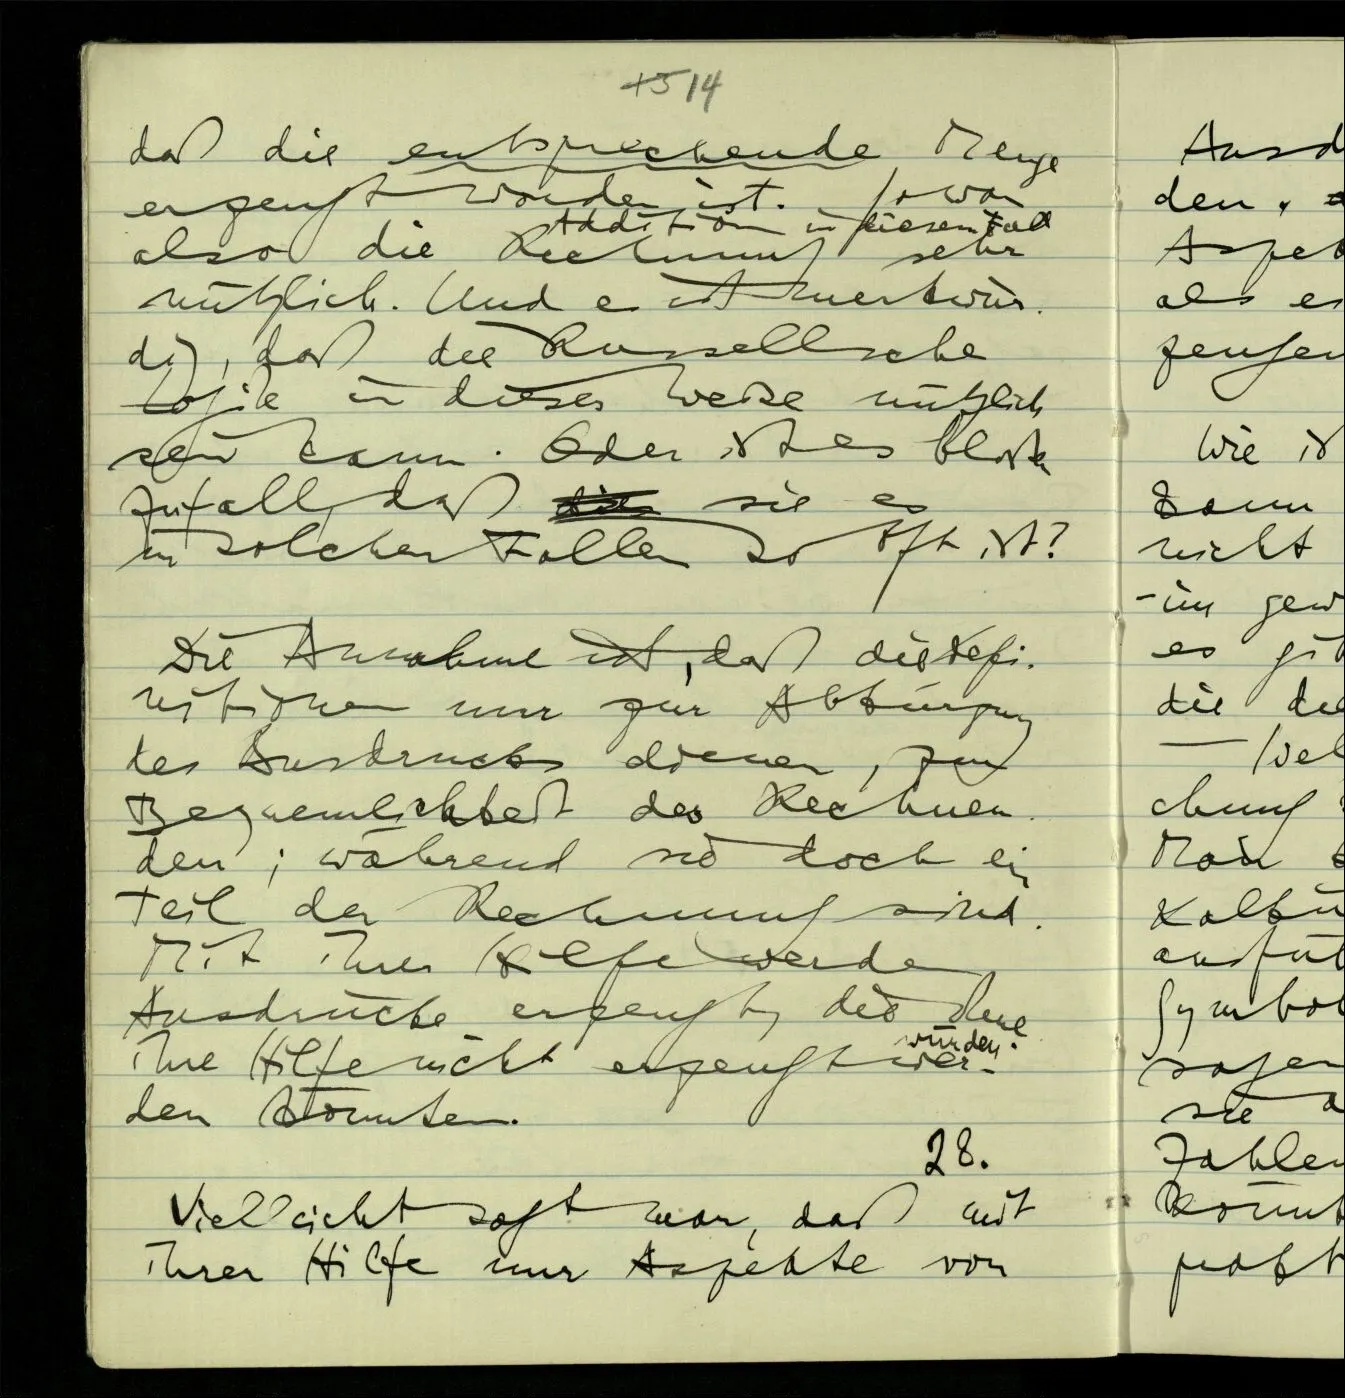 +5 14
daß die entsprechende Menge
erzeugt worden ist. So war
Addition in diesem Fall
also die Rechnung sehr
nützlich. Und es ist merkwür-
dig, daß die Russellsche
Logik in dieser Weise nützlich
sein kann. Oder ist es bloßer
Zufall, daß sie es
in solchen Fällen so oft ist?
Die Annahme ist, daß die Defi-
nitionen nur zur Abkürzung
des Ausdrucks dienen, zur
Bequemlichkeit des Rechnen-
den; während sie doch ein
Teil der Rechnung sind.
Mit ihrer Hilfe werden
Ausdrücke erzeugt, die ohne
würden.
ihre Hilfe nicht erzeugt wer-
den könnten.
28.
Vielleicht sagt man, daß mit
ihrer Hilfe nur Aspekte von
Ausd
den.
Aspek
als er
zeugen
Wie is
kann
nicht
-im gew
es gib
die de
chung
Man
Kalkü
ausfüh
Symbol
sagen
sie
Zahlen
könnt